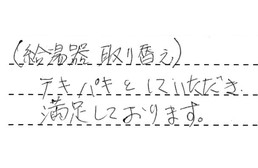 (給湯器 取り替え)
テキパキとしていただき
満足しております。